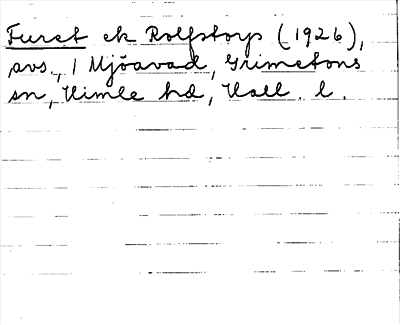 Furet ek Rolfstorp (1926),
avs., 1 Mjöavad, Grimetons
sn, Himle hd, Hall. l.